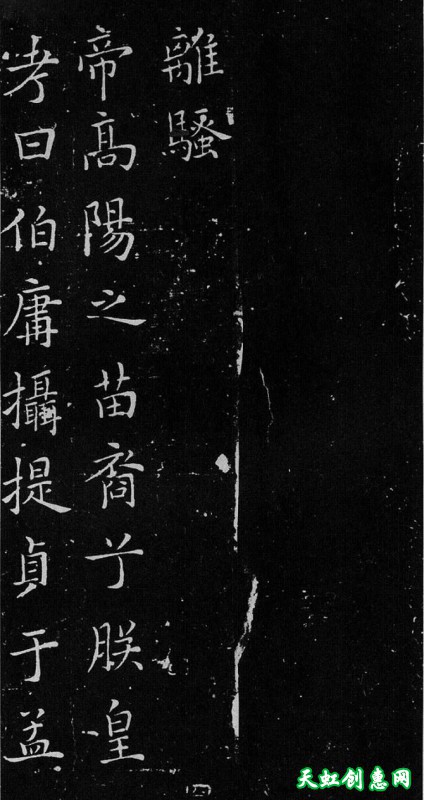 離騷
帝高陽之苗裔兮朕皇
考曰伯庸攝提貞于孟
天虹创惠网